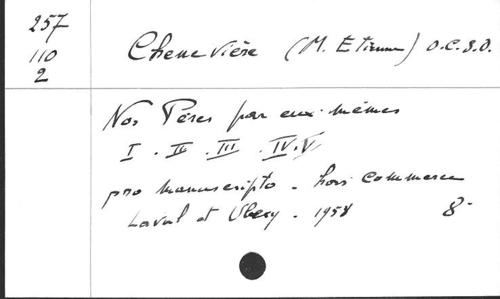 257
110
2
Chenevière (M. Etienne) O.C.S.O.
Nos Pères par eux-mêmes
I . II . III . IV. V
pro manuscripto - hors commerce
Laval et Ubexy - 1958 8°